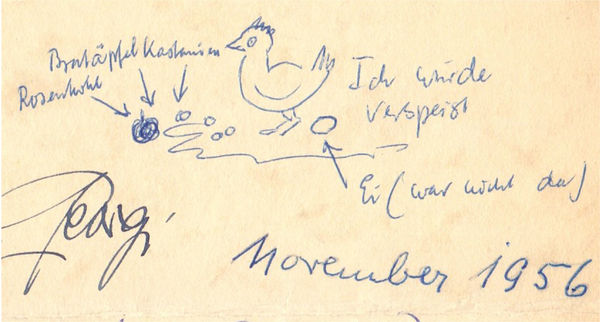 Bratäpfel Kastanien
Rosenkohl
Ich würde
verspeist
Ei (war nicht da)
Georgi
November 1956